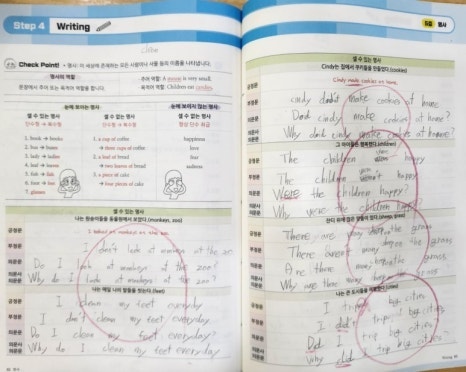 Step 4 Writing
Chloe
Check Point! • 명사: 이 세상에 존재하는 모든 사람이나 사물 등의 이름을 나타냅니다.
명사의 역할
문장에서 주어 또는 목적어 역할을 합니다.
주어 역할: A mouse is very small.
목적어 역할: Children eat candies.
눈에 보이는 명사
눈에 보이지 않는 명사
셀 수 있는 명사
단수형 → 복수형
셀 수 없는 명사
단수형 → 복수형
셀 수 없는 명사
항상 단수 취급
1. book → books
2. bus → buses
3. lady → ladies
4. leaf → leaves
5. fish → fish
6. foot → feet
7. glasses
1. a cup of coffee
→ three cups of coffee
2. a loaf of bread
→ two loaves of bread
3. a piece of cake
→ four pieces of cake
happiness
love
fear
sadness
셀 수 있는 명사
나는 원숭이들을 동물원에서 보았다. (monkeys, zoo)
긍정문 I looked at monkeys at the zoo.
부정문 I don't look at monkeys at the zoo
의문문 Do I look at monkeys at the zoo?
의문사 의문문 Why do I look at monkeys at the zoo?
셀 수 있는 명사
나는 매일 나의 발들을 씻는다. (feet)
긍정문 I clean my feet everyday
부정문 I don't clean my feet everyday.
의문문 Do I clean my feet everyday?
의문사 의문문 Why do I clean my feet everyday?
5급 명사
셀 수 있는 명사
Cindy는 집에서 쿠키들을 만들었다. (cookies)
긍정문 Cindy made cookies at home.
부정문 cindy didn't make cookies at home
의문문 Did cindy make cookies at home?
의문사 의문문 Why did cindy make cookies at home?
셀 수 있는 명사
그 아이들은 행복했다. (children)
긍정문 The children were happy
부정문 The children weren't happy
의문문 Were the children happy?
의문사 의문문 Why were the children happy?
셀 수 있는 명사
긍정문 There are many on the grass
부정문 There aren't many on the grass
의문문 Are there many
의문사 의문문 Why are there many
셀 수 있는 명사
나는 큰 도시들을 여행했다. (cities)
긍정문 I trip big cities
부정문 I didn't trip big cities
의문문 Did I trip big cities
의문사 의문문 Why did I trip big cities